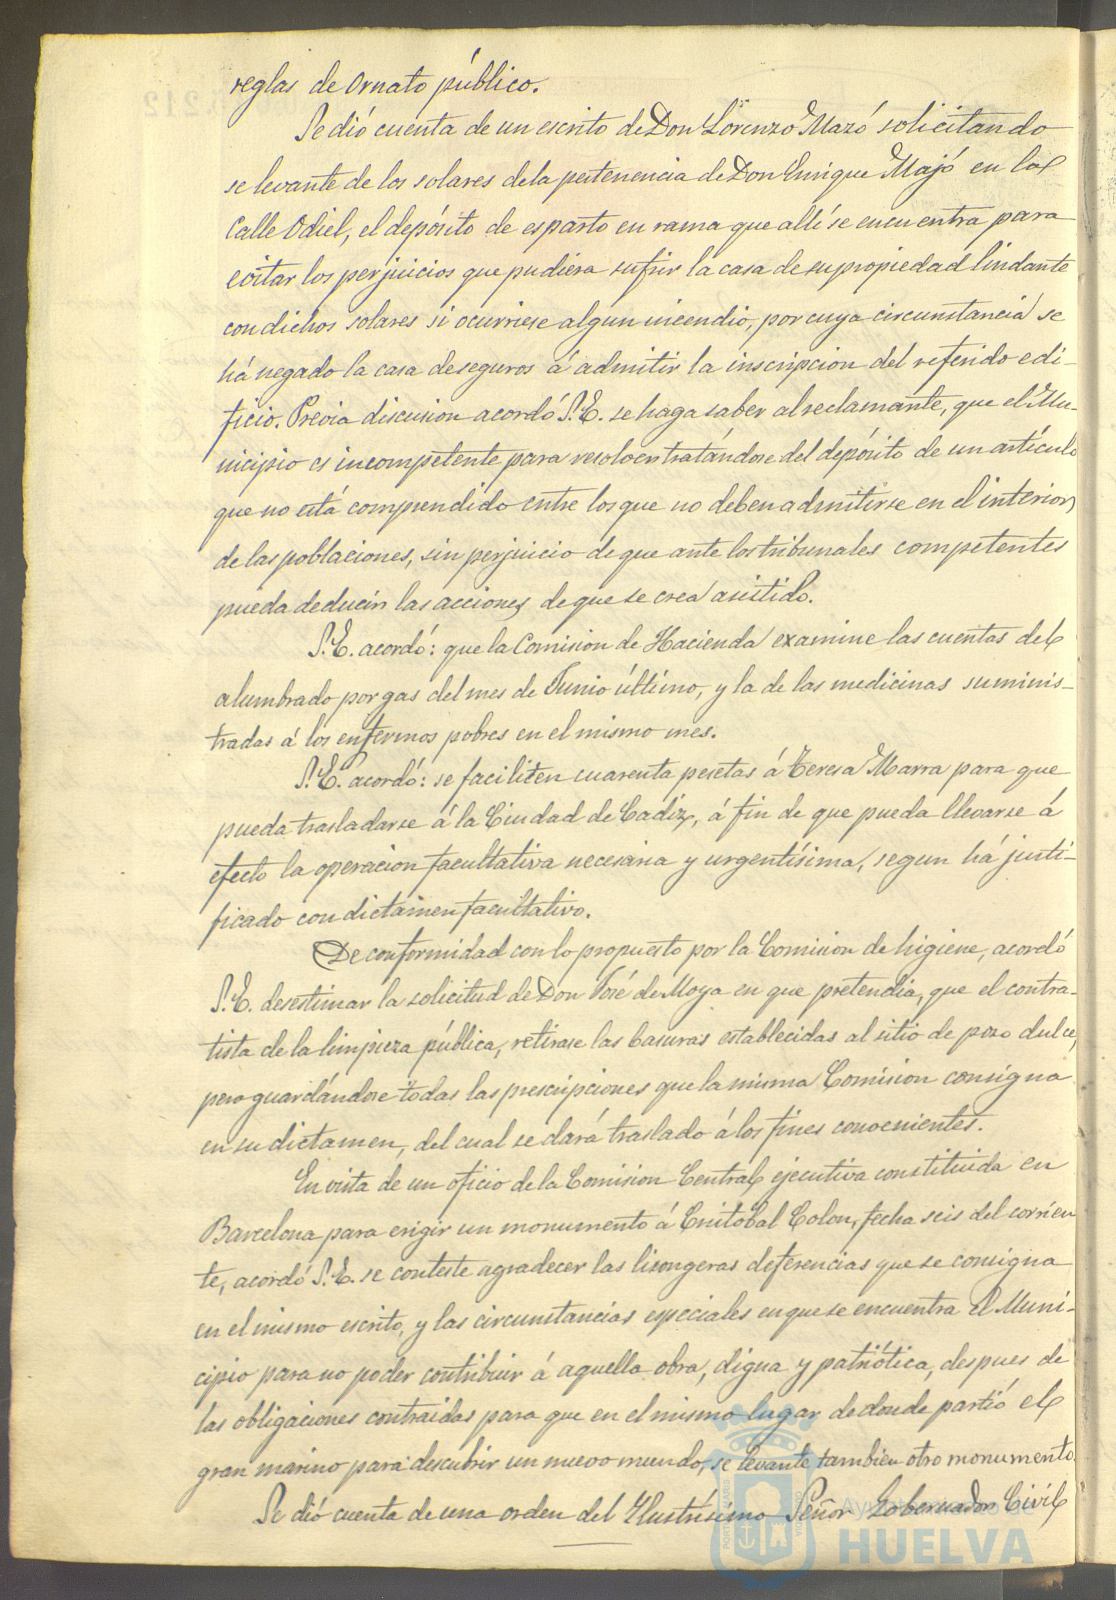 reglas de Ornato público.
Se dió cuenta de un escrito de Don Lorenzo Mazó solicitando
se levante de los solares de la pertenencia de Don Enrique Majó en la
Calle Odiel, el depósito de esparto en rama que allí se encuentra para
evitar los perjuicios que pudiera sufrir la casa de su propiedad lindante
con dichos solares si ocurriese algun incendio, por cuya circunstancia se
há negado la casa de seguros á admitir la inscripcion del referido edi-
ficio. Previa discusion acordó S.E. se haga saber al reclamante, que el Mu-
nicipio es incompetente para resolver tratándose del depósito de un artículo
que no está comprendido entre los que no deben admitirse en el interior
de las poblaciones, sin perjuicio de que ante los tribunales competentes
pueda deducir las acciones de que se crea asistido.
S.E. acordó: que la Comision de Hacienda examine las cuentas del
alumbrado por gas del mes de Junio último, y la de las medicinas suminis-
tradas á los enfermos pobres en el mismo mes.
S.E. acordó: se faciliten cuarenta pesetas á Teresa Marra para que
pueda trasladarse á la Ciudad de Cadiz, á fin de que pueda llevarse á
efecto la operacion facultativa necesaria y urgentísima, segun há justi-
ficado con dictamen facultativo.
De conformidad con lo propuesto por la Comision de higiene, acordó
S.E. desestimar la solicitud de Don José de Moya en que pretendia, que el contra-
tista de la limpieza pública, retirase las basuras establecidas al sitio de pozo dulce,
pero guardándose todas las prescripciones que la misma Comision consigna
en su dictamen, del cual se dará traslado á los fines convenientes.
En vista de un oficio de la Comision Central ejecutiva constituida en
Barcelona para erigir un monumento á Cristobal Colon, fecha seis del corrien
te, acordó S.E. se conteste agradecer las lisongeras deferencias que se consigna
en el mismo escrito, y las circunstancias especiales en que se encuentra el Muni-
cipio para no poder contribuir á aquella obra, digna y patriótica, despues de
las obligaciones contraidas para que en el mismo lugar de donde partió el
gran marino para descubrir un nuevo mundo, se levante tambien otro monumento.
Se dió cuenta de una orden del Ilustrísimo Señor Gobernador Civil
Ayuntamiento de
HUELVA